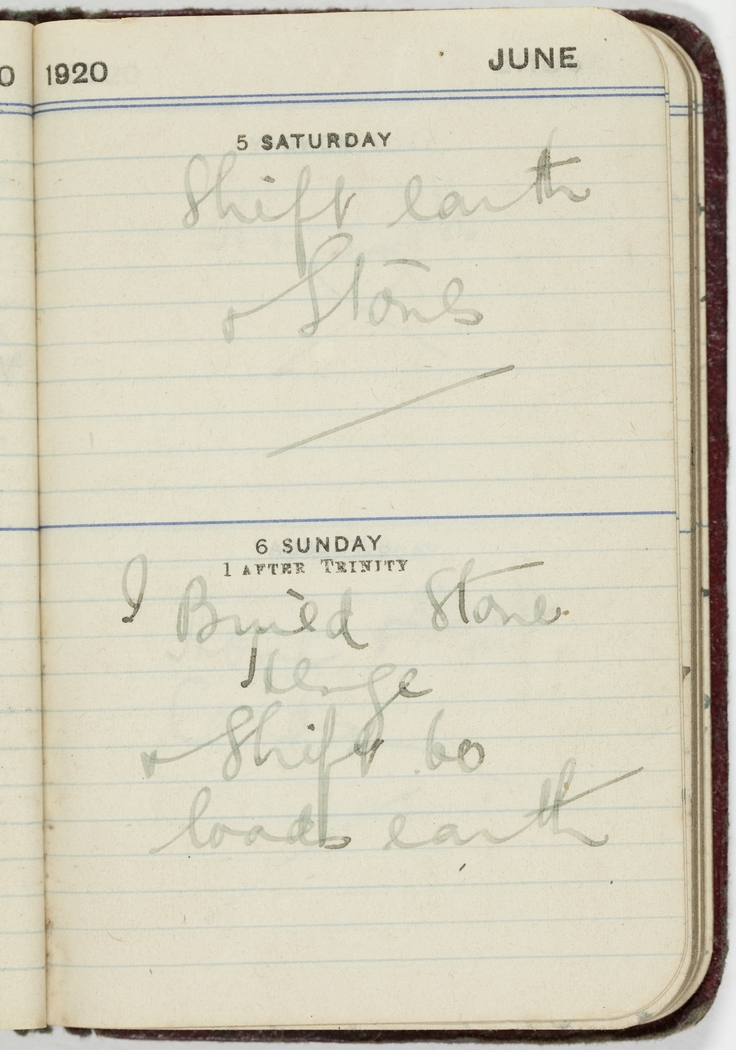 0 1920 JUNE
5 SATURDAY
Shift earth
& Stones
6 SUNDAY
1 AFTER TRINITY
I Buried Stone
Henge
& Shift 60
loads earth